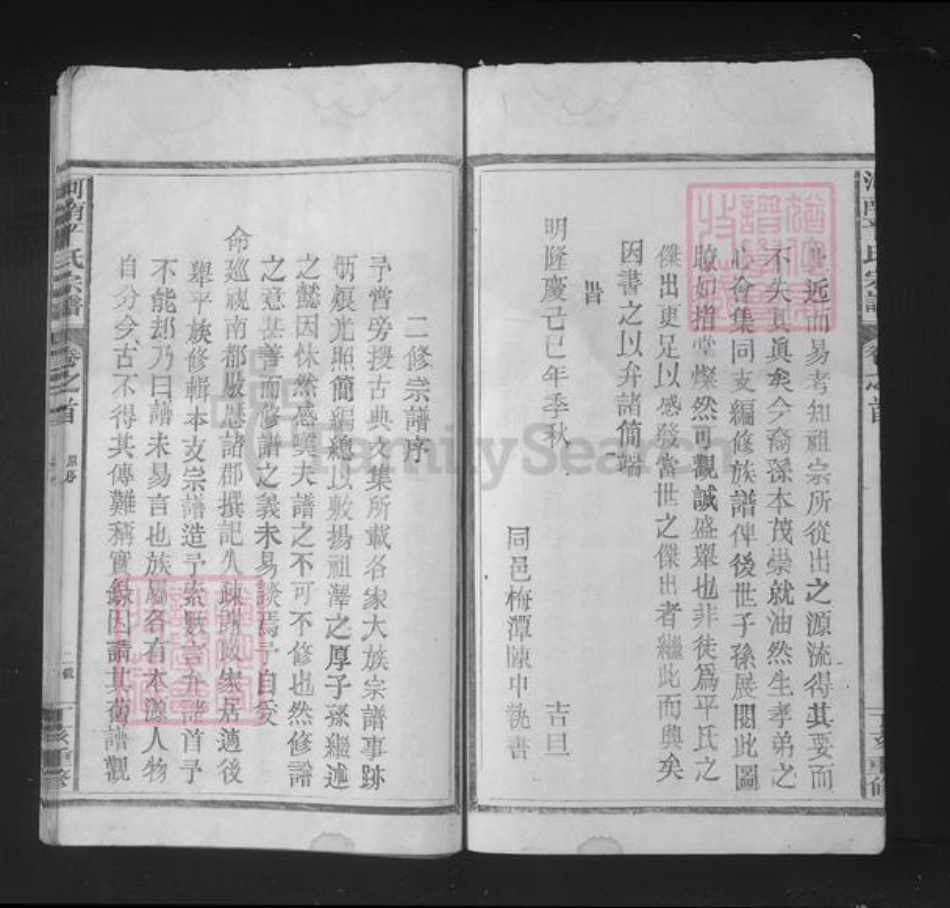 近而易者知祖宗所從出之源流得其要而
不失其眞矣今裔孫本茂崇就油然生孝弟之
心會集同支編修族譜俾後世子孫展閱此圖
瞭如指掌燦然可觀誠盛舉也非徒爲平氏之
傑出更足以感發當世之傑出者繼此而興矣
因書之以弁諸簡端
旹
明隆慶己巳年季秋 吉旦
同邑梅潭陳中執書
河南平氏宗譜 卷之首 丁亥重修
二修宗譜序
予嘗旁搜古典文集所載名家大族宗譜事跡
炳煩光照簡編總以敷揚祖澤之厚子孫繼述
之懿因怵然感嘆夫譜之不可不修也然修譜
之意甚善而修譜之義未易談焉予自受
命巡視南都敭歷諸郡撰記久疎謝政家居適後
舉平族修輯本支宗譜造予索數言弁諸首予
不能却乃曰譜未易言也族屬各有本源人物
自分今古不得其傳難稱實錄因請其舊譜觀
河南平氏宗譜 卷之首 原序 亥重修
FamilySearch